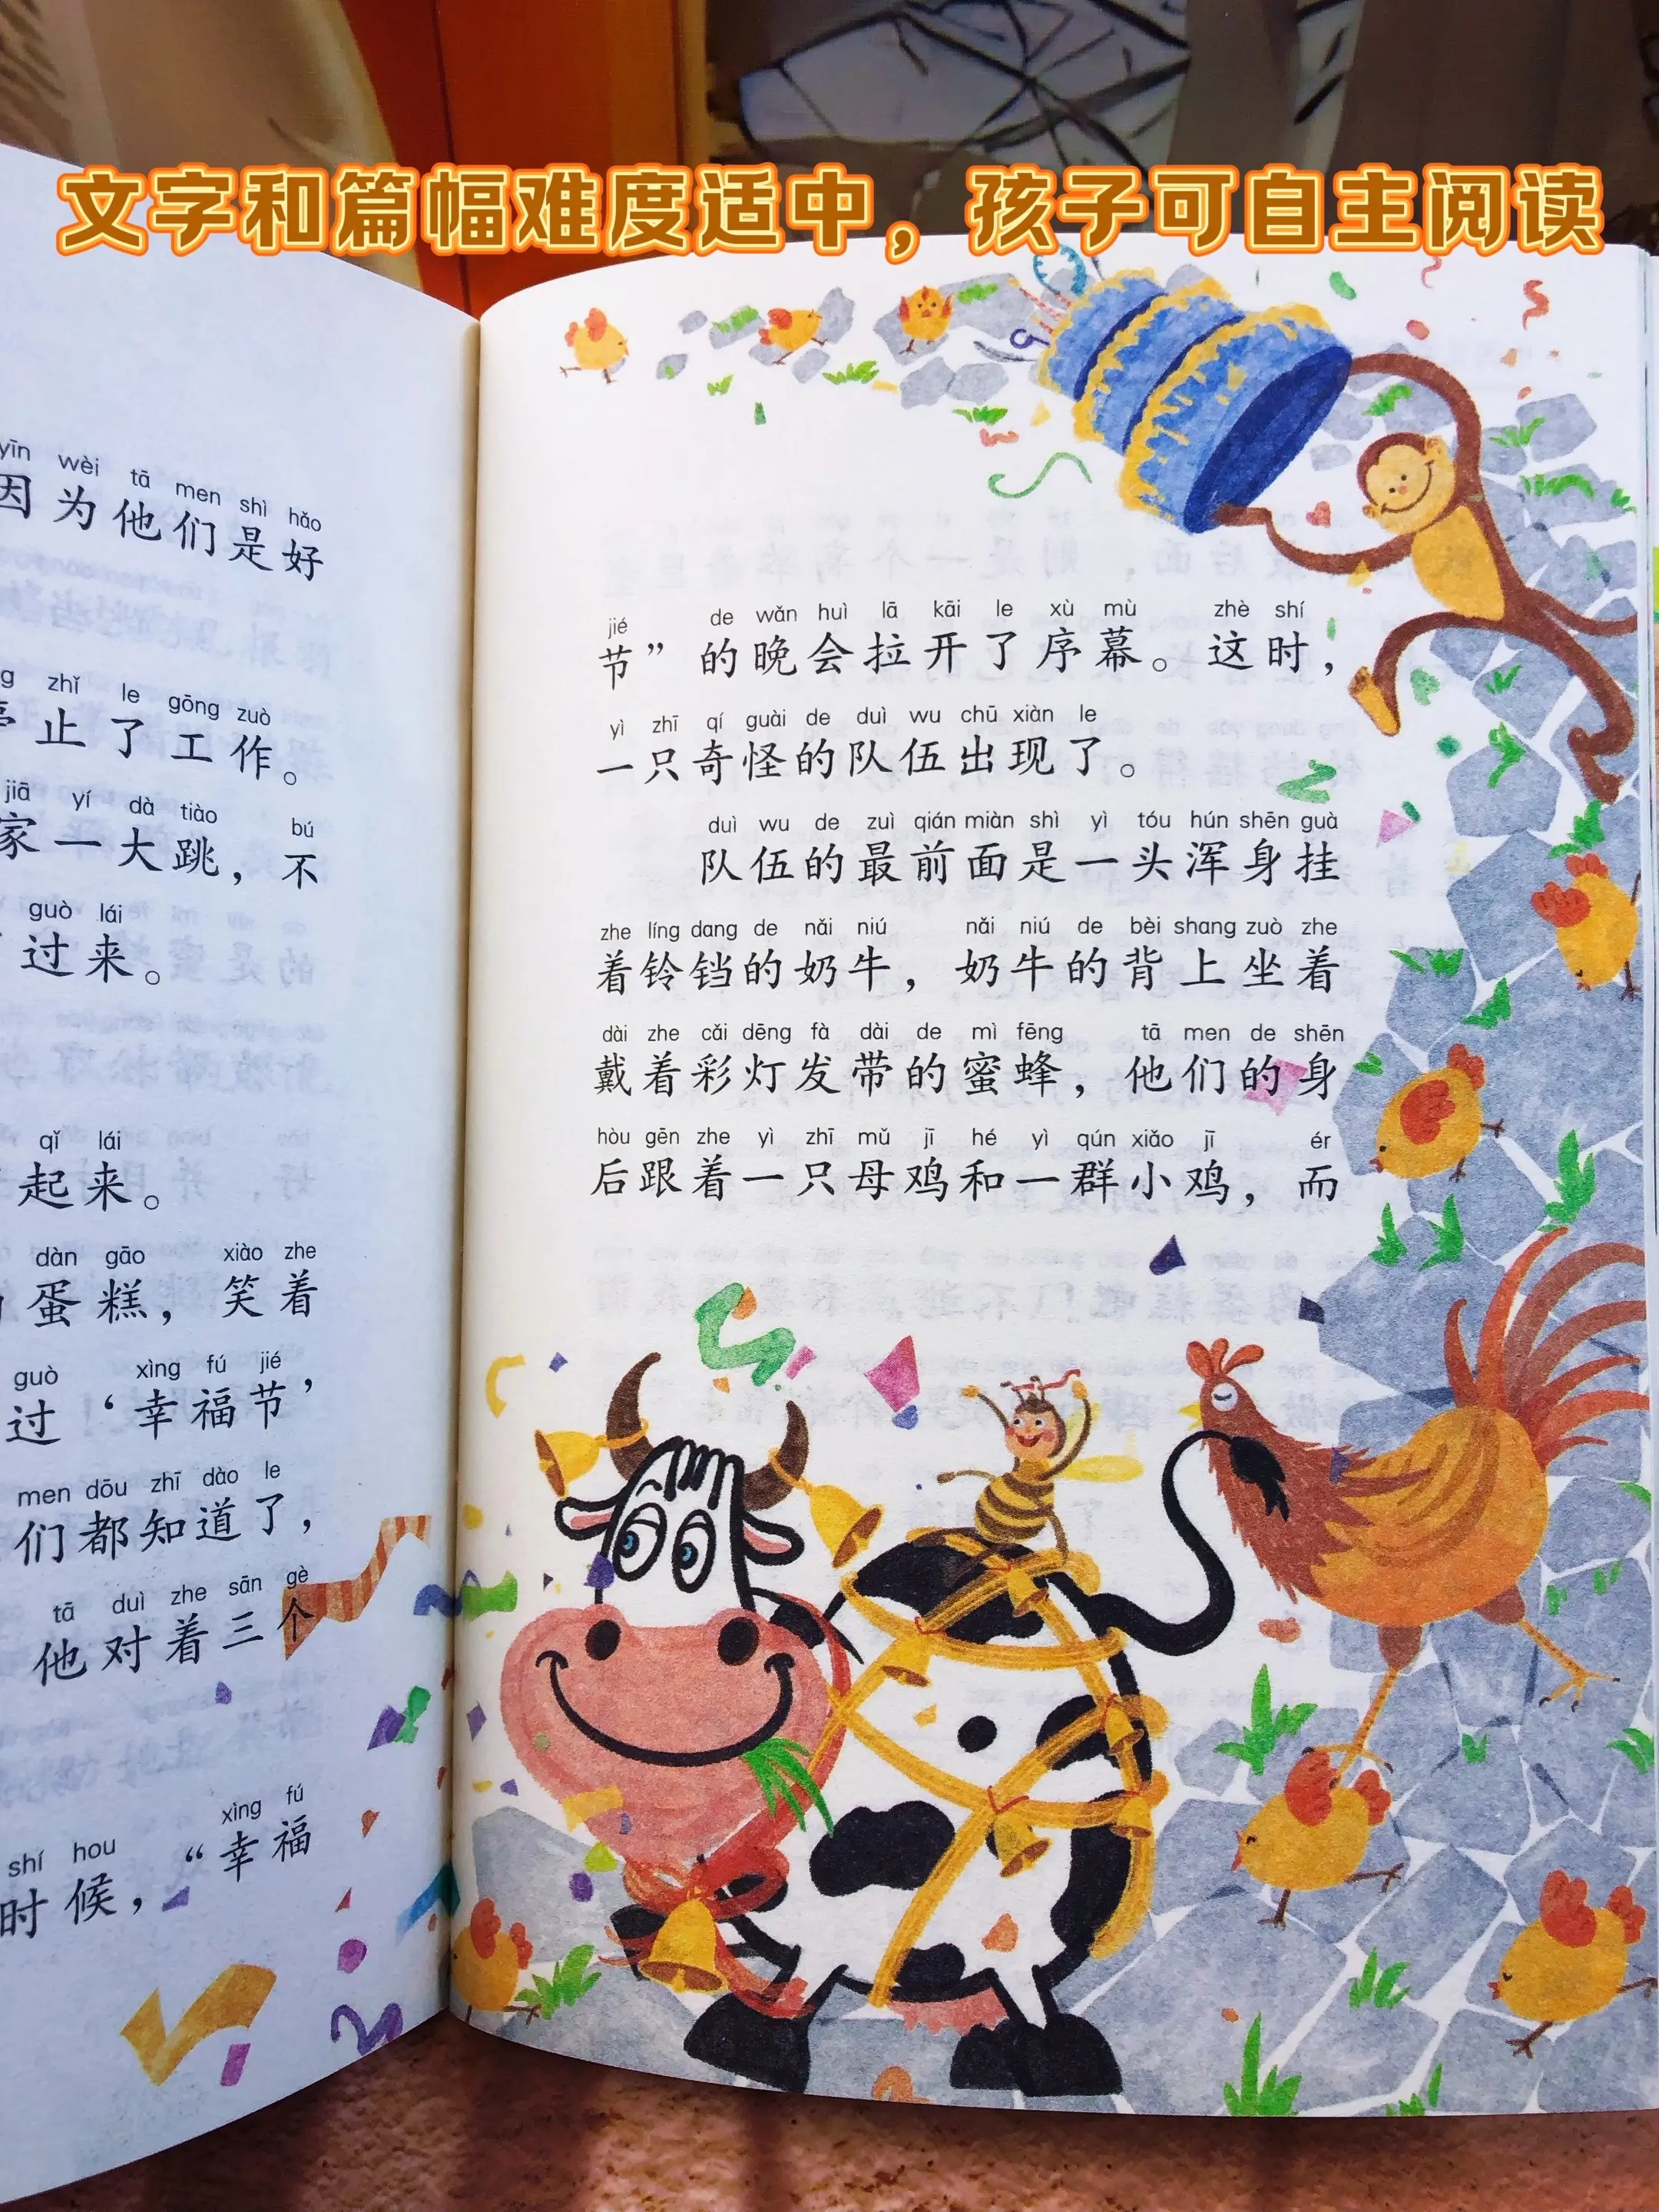 文字和篇幅难度适中，孩子可自主阅读
yīn wèi tā men shì hǎo
因为他们是好
zhǐ le gōng zuò
停止了工作。
jiā yí dà tiào bú
家一大跳，不
guò lái
过来。
qǐ lái
起来。
dàn gāo xiào zhe
蛋糕，笑着
guò xìng fú jié
过‘幸福节’
men dōu zhī dào le
们都知道了，
tā duì zhe sān gè
他对着三个
shí hou xìng fú
时候，“幸福
jié de wǎn huì lā kāi le xù mù zhè shí
节”的晚会拉开了序幕。这时，
yì zhī qí guài de duì wu chū xiàn le
一只奇怪的队伍出现了。
duì wu de zuì qián miàn shì yì tóu hún shēn guà
队伍的最前面是一头浑身挂
zhe líng dang de nǎi niú nǎi niú de bèi shang zuò zhe
着铃铛的奶牛，奶牛的背上坐着
dài zhe cǎi dēng fà dài de mì fēng tā men de shēn
戴着彩灯发带的蜜蜂，他们的身
hòu gēn zhe yì zhī mǔ jī hé yì qún xiǎo jī ér
后跟着一只母鸡和一群小鸡，而